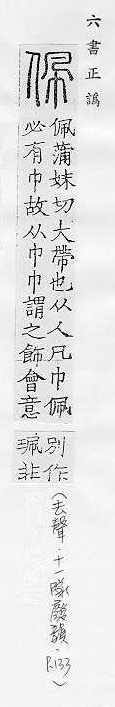 六書正譌
佩
佩蒲妹切大帶也从人凡巾佩
必有巾故从巾巾謂之飾會意
別作
珮非
(去聲．十一隊廢韻．P.133)